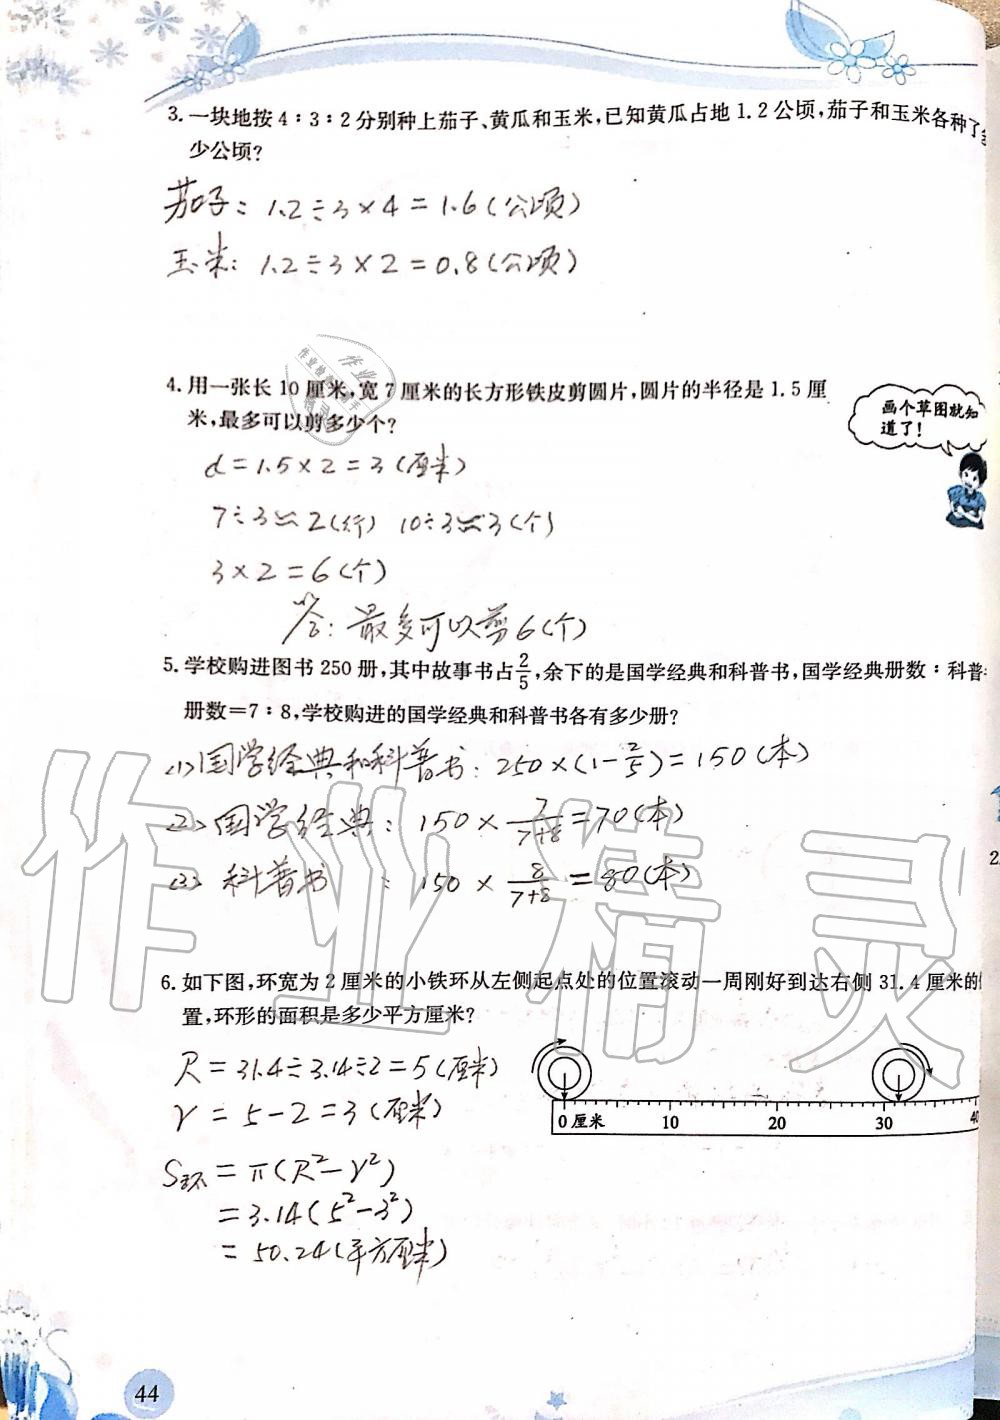 3. 一块地按 4∶3∶2 分别种上茄子、黄瓜和玉米,已知黄瓜占地 1.2 公顷,茄子和玉米各种了
少公顷?
茄子: 1.2÷3×4=1.6(公顷)
玉米: 1.2÷3×2=0.8(公顷)
4. 用一张长 10 厘米,宽 7 厘米的长方形铁皮剪圆片,圆片的半径是 1.5 厘
米,最多可以剪多少个?
画个草图就知
道了!
d=1.5×2=3(厘米)
7÷3≈2(行) 10÷3≈3(个)
3×2=6(个)
答: 最多可以剪6(个)
5. 学校购进图书 250 册,其中故事书占2/5,余下的是国学经典和科普书,国学经典册数∶科普
册数=7∶8,学校购进的国学经典和科普书各有多少册?
(1) 国学经典和科普书: 250×(1-2/5)=150(本)
(2) 国学经典: 150×7/(7+8)=70(本)
(3) 科普书 : 150×8/(7+8)=80(本)
6. 如下图,环宽为 2 厘米的小铁环从左侧起点处的位置滚动一周刚好到达右侧 31.4 厘米的
置,环形的面积是多少平方厘米?
R=31.4÷3.14÷2=5(厘米)
r=5-2=3(厘米)
0厘米 10 20 30
S环=π(R²-r²)
=3.14(5²-3²)
=50.24(平方厘米)
44
作业精灵